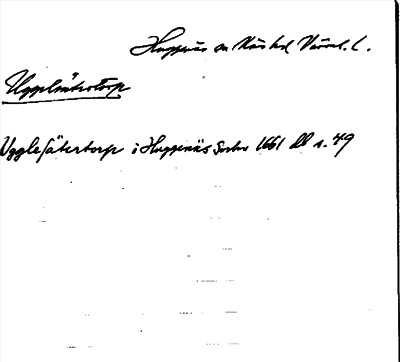 Huggenäs sn Näs hd Värml. l.
Ugglesätertorp
Ugglesätertorp i Huggenäs Sochn 1661 Dl s. 49